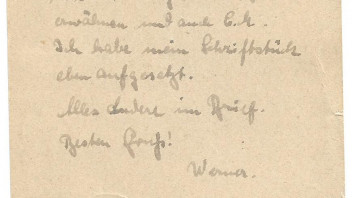 erwähnen und auch C.K.
Ich habe mein Schriftstück
eben aufgesetzt.
Alles Andere im Brief.
Besten Gruß!
Werner.